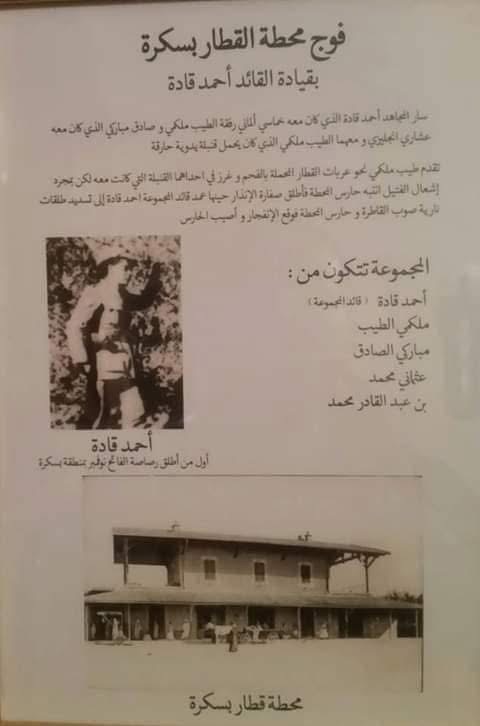 فوج محطة القطار بسكرة
بقيادة القائد أحمد قادة
سار المجاهد أحمد قادة الذي كان معه خماسي ألماني رفقة الطيب ملكمي و صادق مباركي الذي كان معه
عشاري انجليزي و معهما الطيب ملكمي الذي كان يحمل قنبلة يدوية حارقة
تقدم طيب ملكمي نحو عربات القطار المحملة بالفحم و غرز في احداهما القنبلة التي كانت معه لكن بمجرد
إشعال الفتيل انتبه حارس المحطة فأطلق صفارة الإنذار حينها عمد قائد المجموعة احمد قادة إلى تسديد طلقات
نارية صوب القاطرة و حارس المحطة فوقع الإنفجار و أصيب الحارس
المجموعة تتكون من :
أحمد قادة ( قائد المجموعة )
ملكمي الطيب
مباركي الصادق
عثماني محمد
بن عبد القادر محمد
أحمد قادة
أول من أطلق رصاصة الفاتح نوفمبر بمنطقة بسكرة
محطة قطار بسكرة